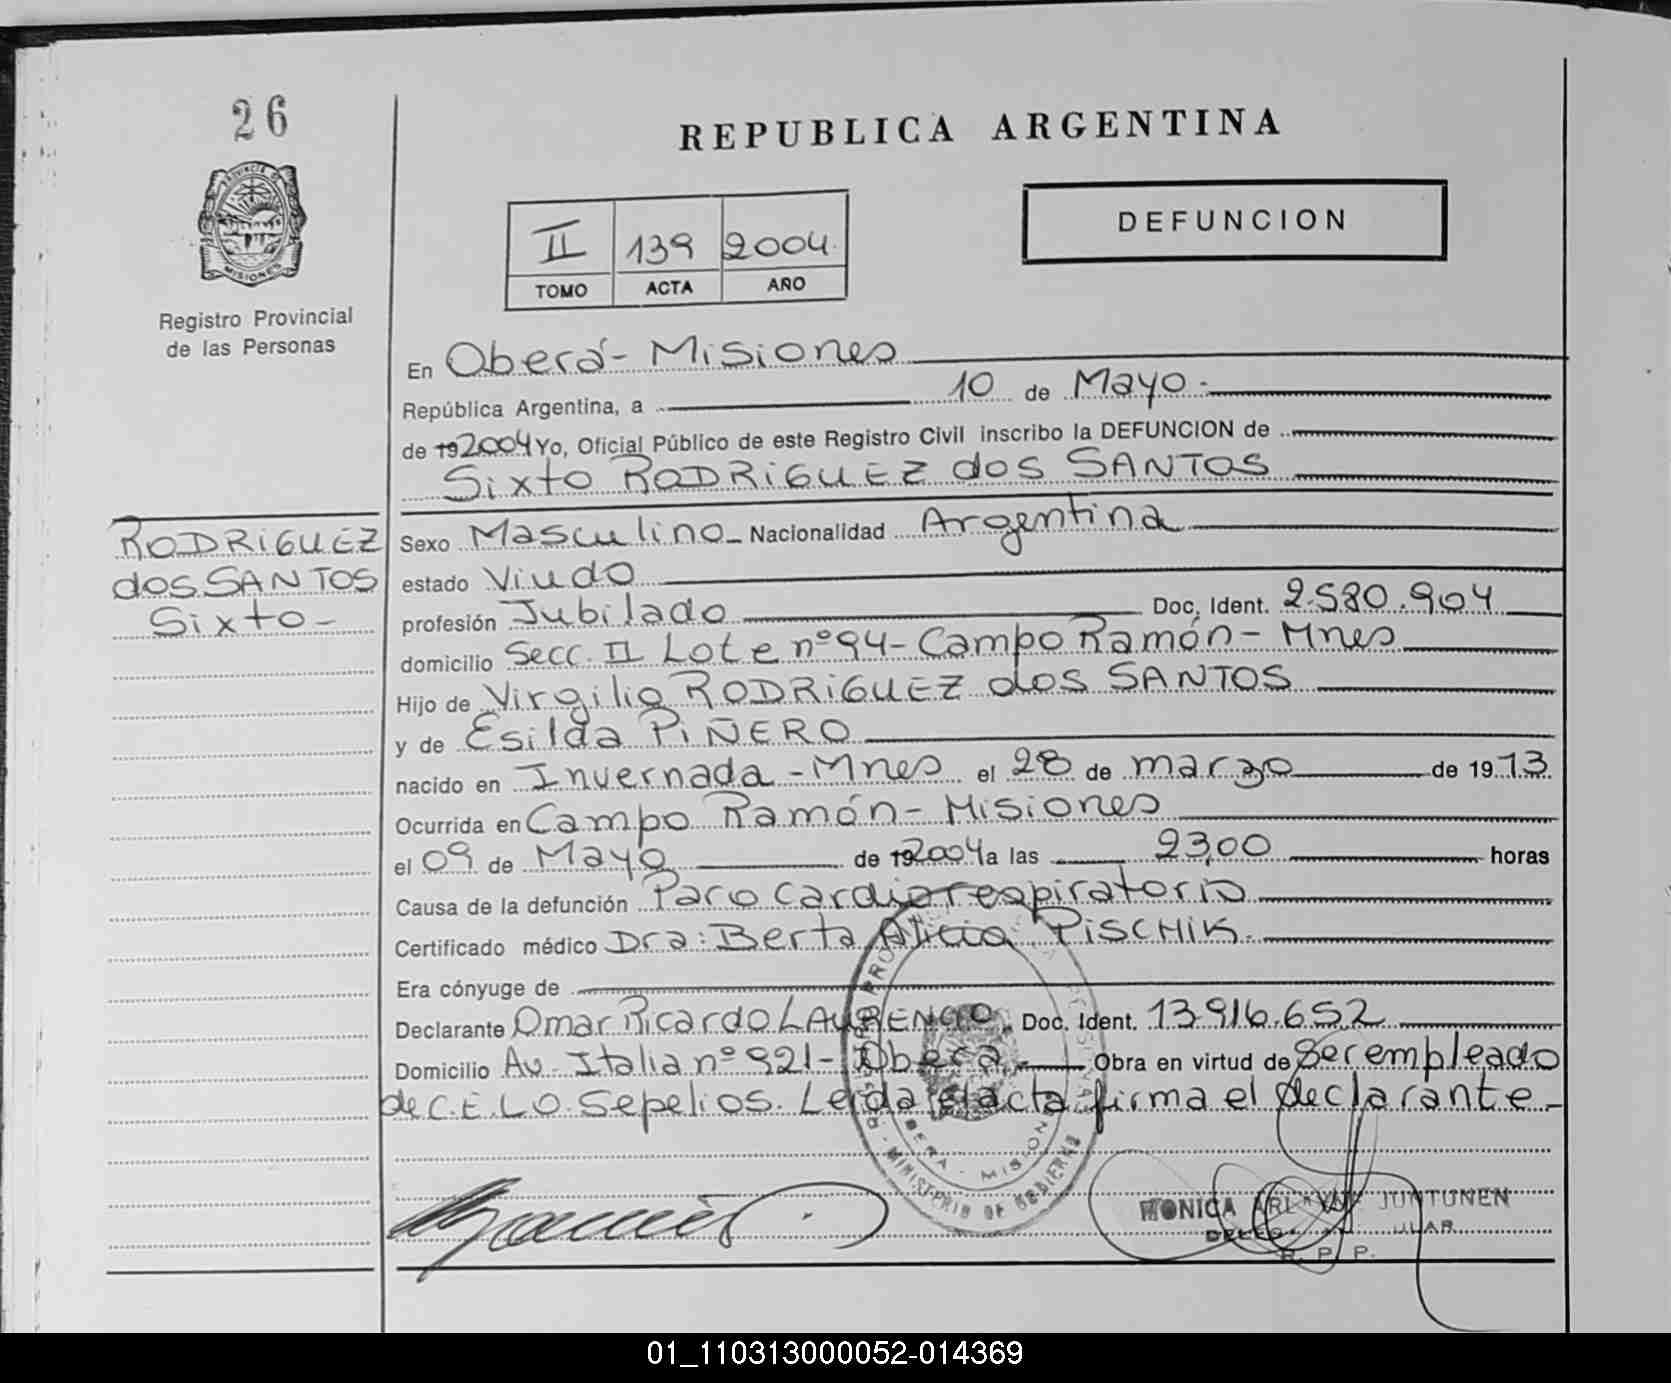 26
REPUBLICA ARGENTINA
PROVINCIA DE
MISIONES
Registro Provincial
de las Personas
II 139 2004
TOMO ACTA AÑO
DEFUNCION
En Oberá - Misiones
República Argentina, a 10 de Mayo.-
de 192004 Yo, Oficial Público de este Registro Civil inscribo la DEFUNCION de
Sixto RODRIGUEZ dos SANTOS
RODRIGUEZ
dos SANTOS
Sixto-
Sexo Masculino- Nacionalidad Argentina
estado Viudo
profesión Jubilado Doc. Ident. 2.580.904
domicilio Secc. II Lote nº 94- Campo Ramón- Mnes
Hijo de Virgilio RODRIGUEZ dos SANTOS
y de Esilda PIÑERO
nacido en Invernada - Mnes el 28 de marzo de 1913
Ocurrida en Campo Ramón- Misiones
el 09 de Mayo de 192004 a las 23,00 horas
Causa de la defunción Paro cardiorespiratorio
Certificado médico Dra: Berta Alicia PISCHIK.
Era cónyuge de
Declarante Omar Ricardo LAURENCIO. Doc. Ident. 13.916.652
Domicilio Av. Italia nº 921- Oberá. Obra en virtud de Ser empleado
de C.E.L.O. Sepelios. Leida el acta firma el declarante-
MINISTERIO DE GOBIERNO
OBERA - MISIONES
MONICA JUNTUNEN
R. P. P.
01_110313000052-014369